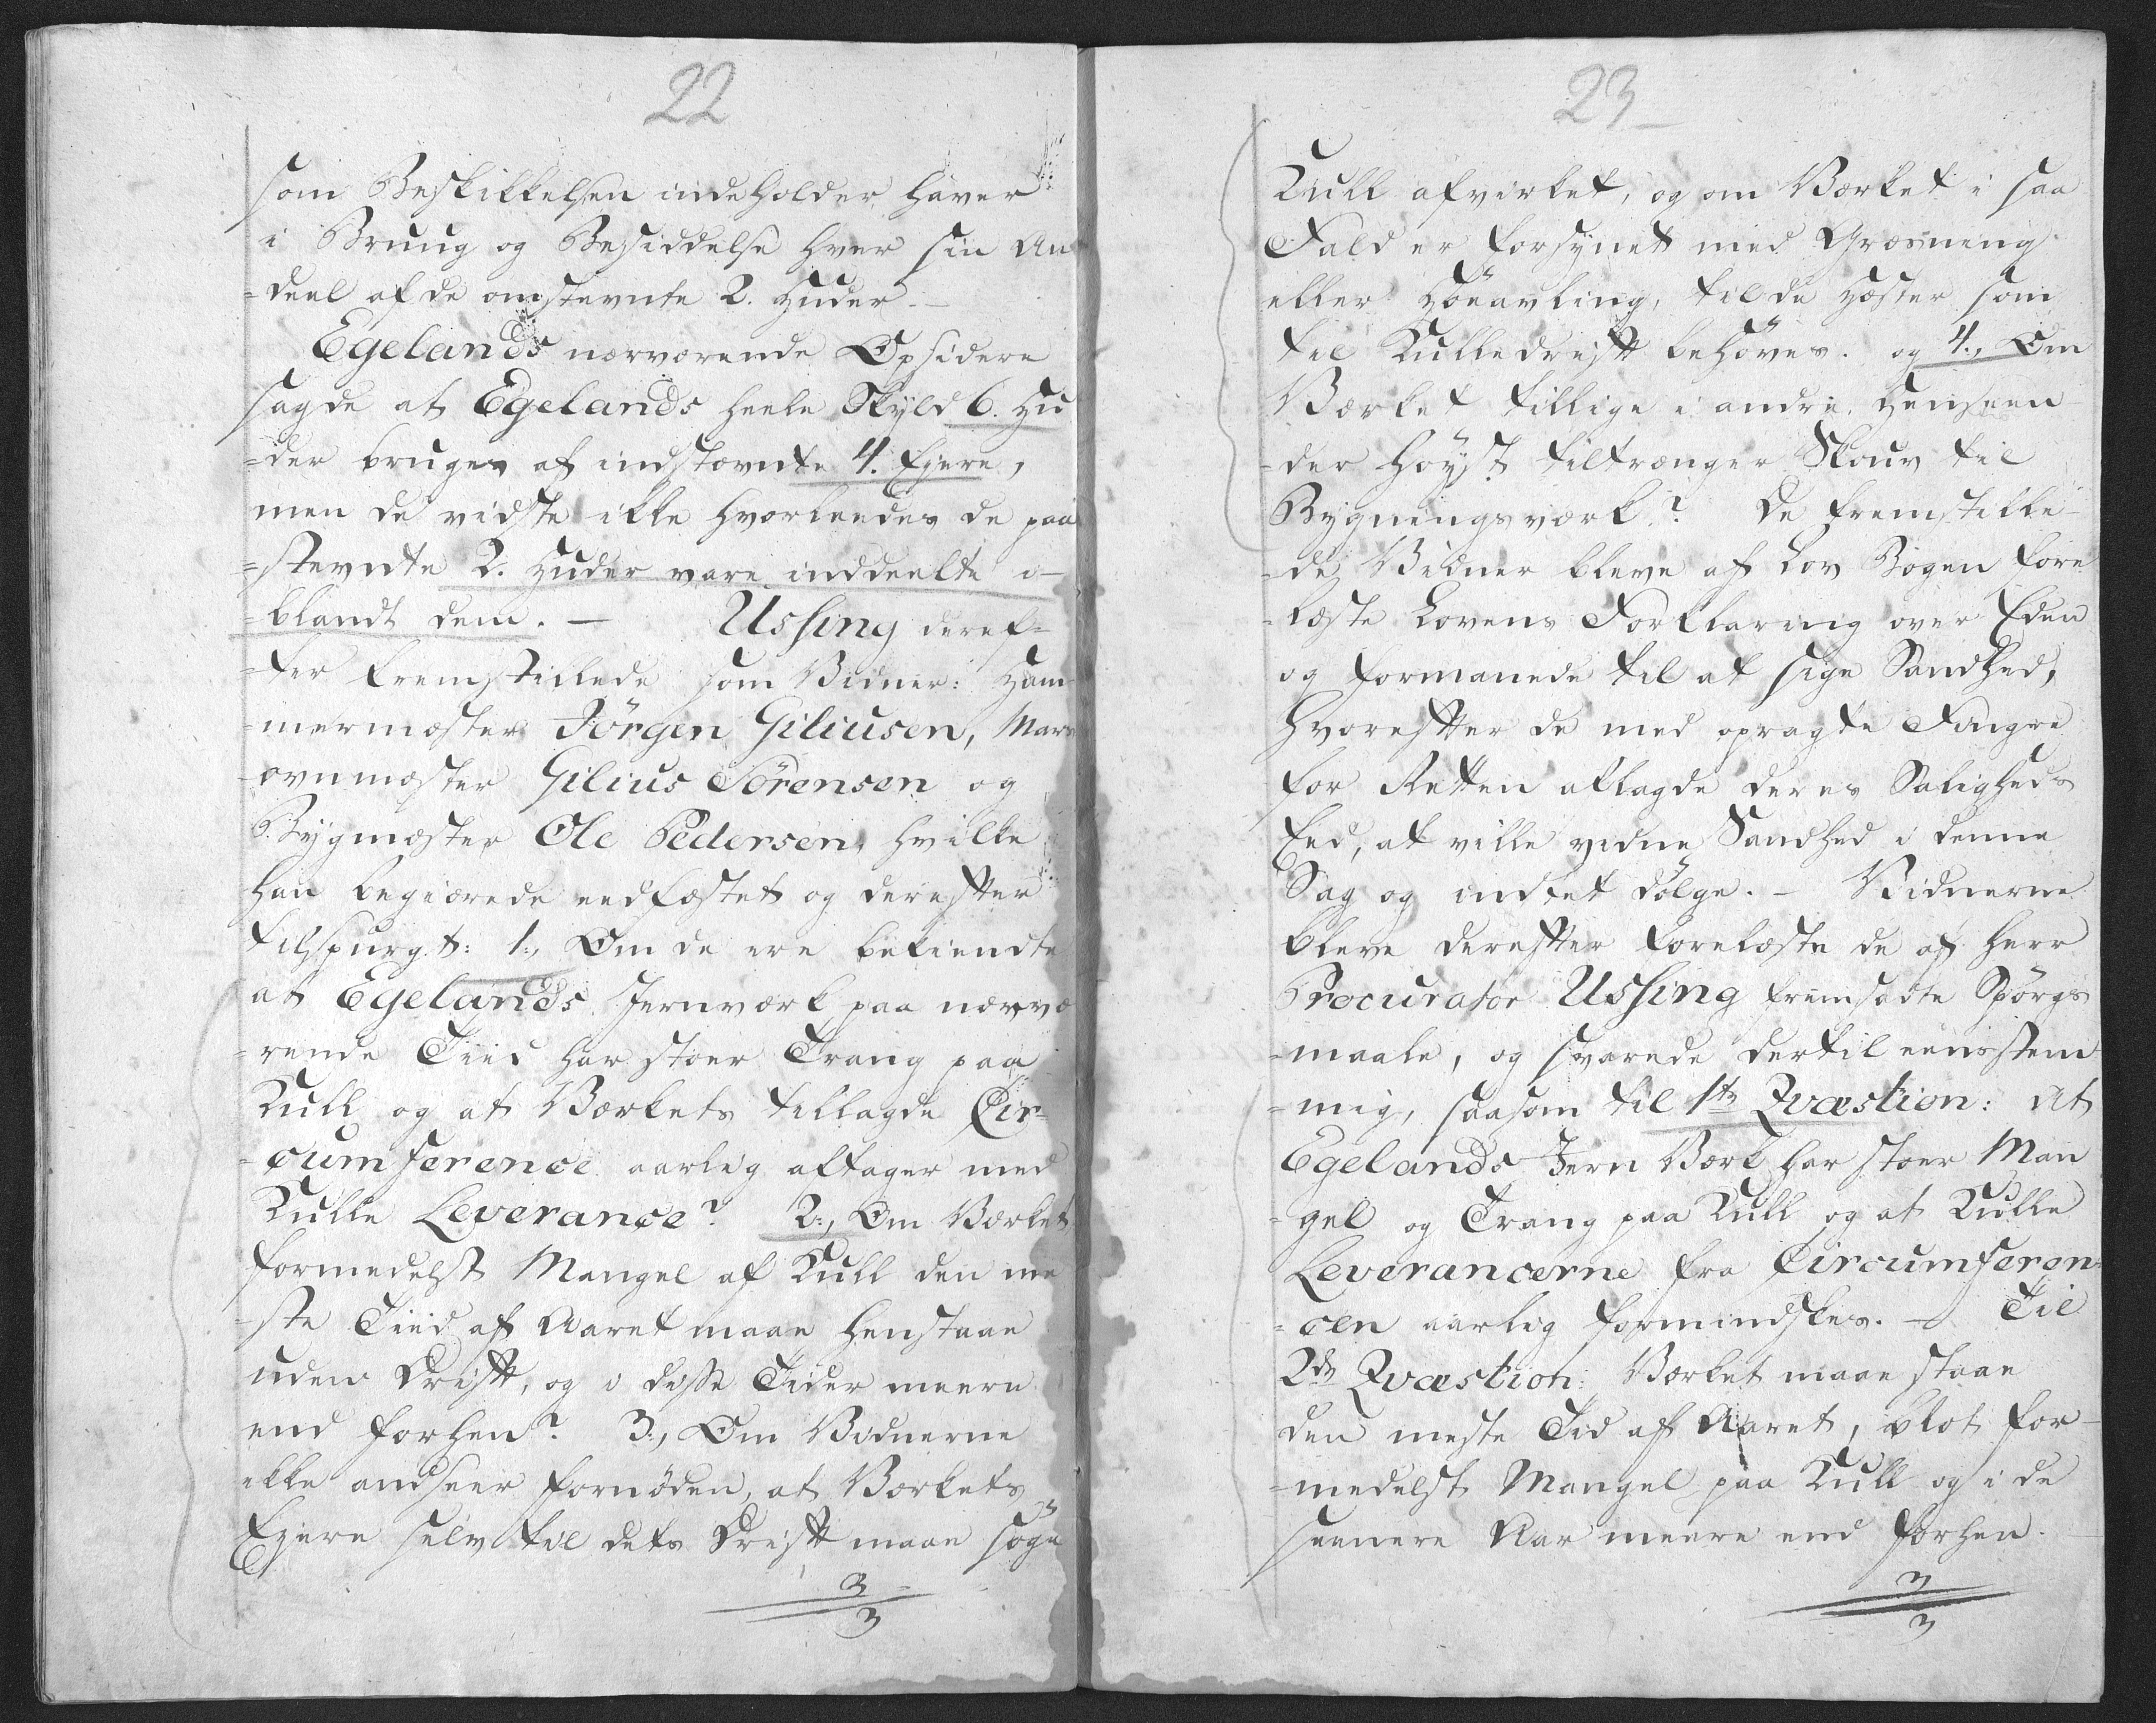 22
som Beskikkelsen indeholder haver
i Bruug og Besiddelse hver sin An
=deel af de omstevnte 2. Huder. –
Egelands nærværende Opsidere
sagde at Egelands heele Skyld 6. Hu
=der bruges af indstævnte 4. Ejere,
men de vidste ikke hvorleedes de paa
=stevnte 2. Huder vare inddeelte i–
=blandt dem. – Ussing deref=
=ter fremstillede som Vidner: Ham
=mermæster Jörgen Giliusen, Mas
=ovnmæster Gilius Sörensen og
Bygmæster Ole Pedersen, hvilke
han begiærede eedfæstet og derefter
tilspurgt: 1., Om de ere bekiendte
at Egelands Jernværk paa nærvæ
=rende Tiid har stoer Trang paa
Kull og at Værkets tillagde Cir=
=cumference aarlig aftager med
Kulle Leverance? 2., Om Værket
formedelst Mangel af Kull den me
=ste Tiid af Aaret maae henstaae
uden Drift, og i disse Tider meere
end forhen? 3., Om Vidnerne
ikke andseer fornöden, at Værkets
Ejere selv til dets Drift maae söge
3
3
23
Kull afvirket, og om Værket i saa
Fald er forsynet med Græsning
eller Höeavling, til de Hæster som
til Kulledrift behöves. og 4., Om
Værket tillige i andre Henseen
=der höyst tiltrænger Skouv til
Bygningsværk? De fremstille–
=de Vidner bleve af Lov Bogen fore
=læste Lovens Forklaring over Eden
og formanede til at sige Sandhed,
hvorefter de med opragte Fingre
for Retten aflagde deres Saligheds
Eed, at ville vidne Sandhed i denne
Sag og indtet dölge. – Vidnerne
bleve derefter forelæste de af Herr
Procurator Ussing fremsadte Spörgs
=maale, og svarede dertil eensstem
=mig, saasom til 1te Qvæstion: At
Egelands Jern Værk har stoer Man
=gel og Trang paa Kull og at Kulle
Leverancerne fra Circumferen=
=cen aarlig formindskes. – Til
2de Qvæstion: Værket maae staae
den meste Tid af Aaret, blot for–
=medelst Mangel paa Kull og i de
seenere Aar meere end forhen.
3
3